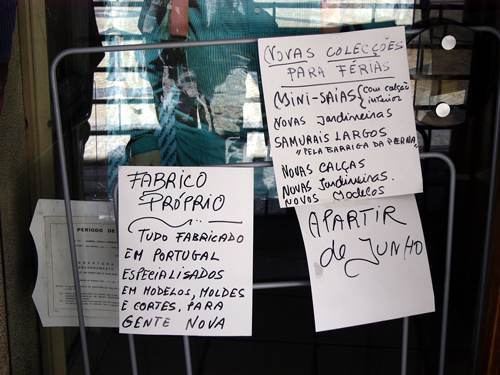 NOVAS COLECÇÕES
PARA FÉRIAS
MINI-SAIAS (com calção
interior
NOVAS Jardineiras
SAMURAIS LARGOS
"PELA BARRIGA DA PERNA"
NOVAS CALÇAS
NOVAS Jardineiras.
NOVOS Modelos
APARTIR
de JUNHO
FABRICO
PRÓPRIO
TUDO FABRICADO
EM PORTUGAL
ESPECIALISADOS
EM MODELOS, MOLDES
E CORTES, PARA
GENTE NOVA
PERIODO DE